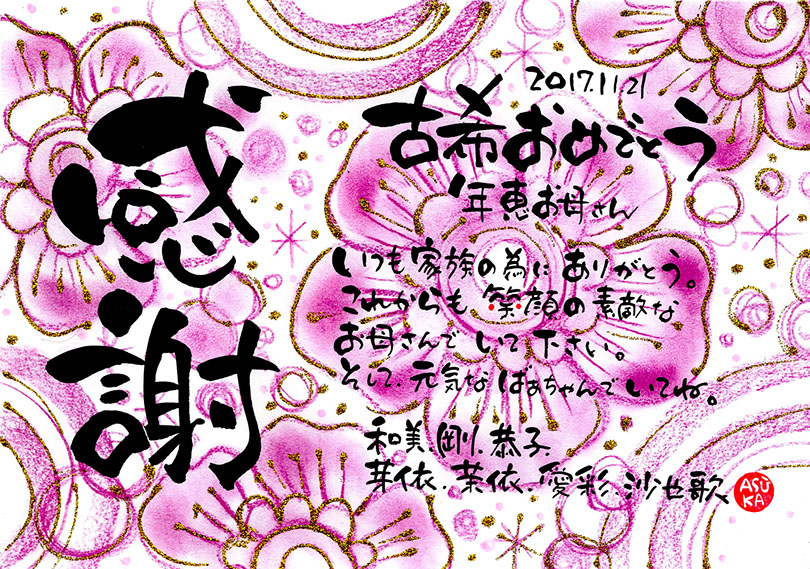 感謝
2017.11.21
古希おめでとう
年恵お母さん
いつも家族の為にありがとう。
これからも笑顔の素敵な
お母さんでいて下さい。
そして、元気なばあちゃんでいてね。
和美.剛.恭子.
芽依.茉依.愛彩.沙也歌
ASUKA